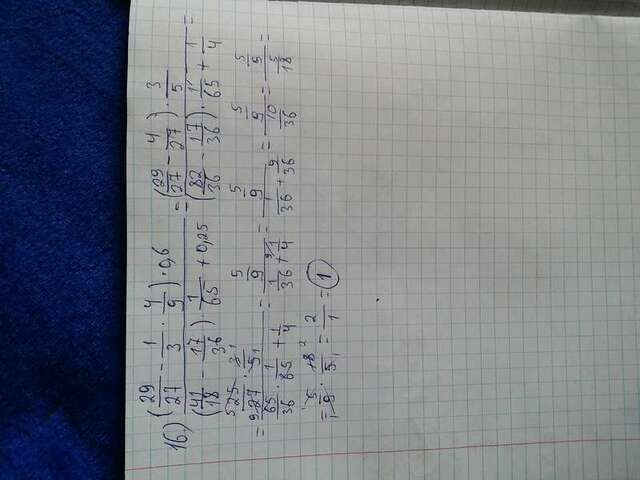 16) ((29/27 - 1/3 · 4/9) · 0,6) / ((41/18 - 17/36) · 1/65 + 0,25) = ((29/27 - 4/27) · 3/5) / ((82/36 - 17/36) · 1/65 + 1/4) =
= (25/27 · 3/5) / (65/36 · 1/65 + 1/4) = (5/9) / (1/36 + 1/4) = (5/9) / (1/36 + 9/36) = (5/9) / (10/36) = (5/9) / (5/18) =
= 5/9 · 18/5 = 2/1 = 1